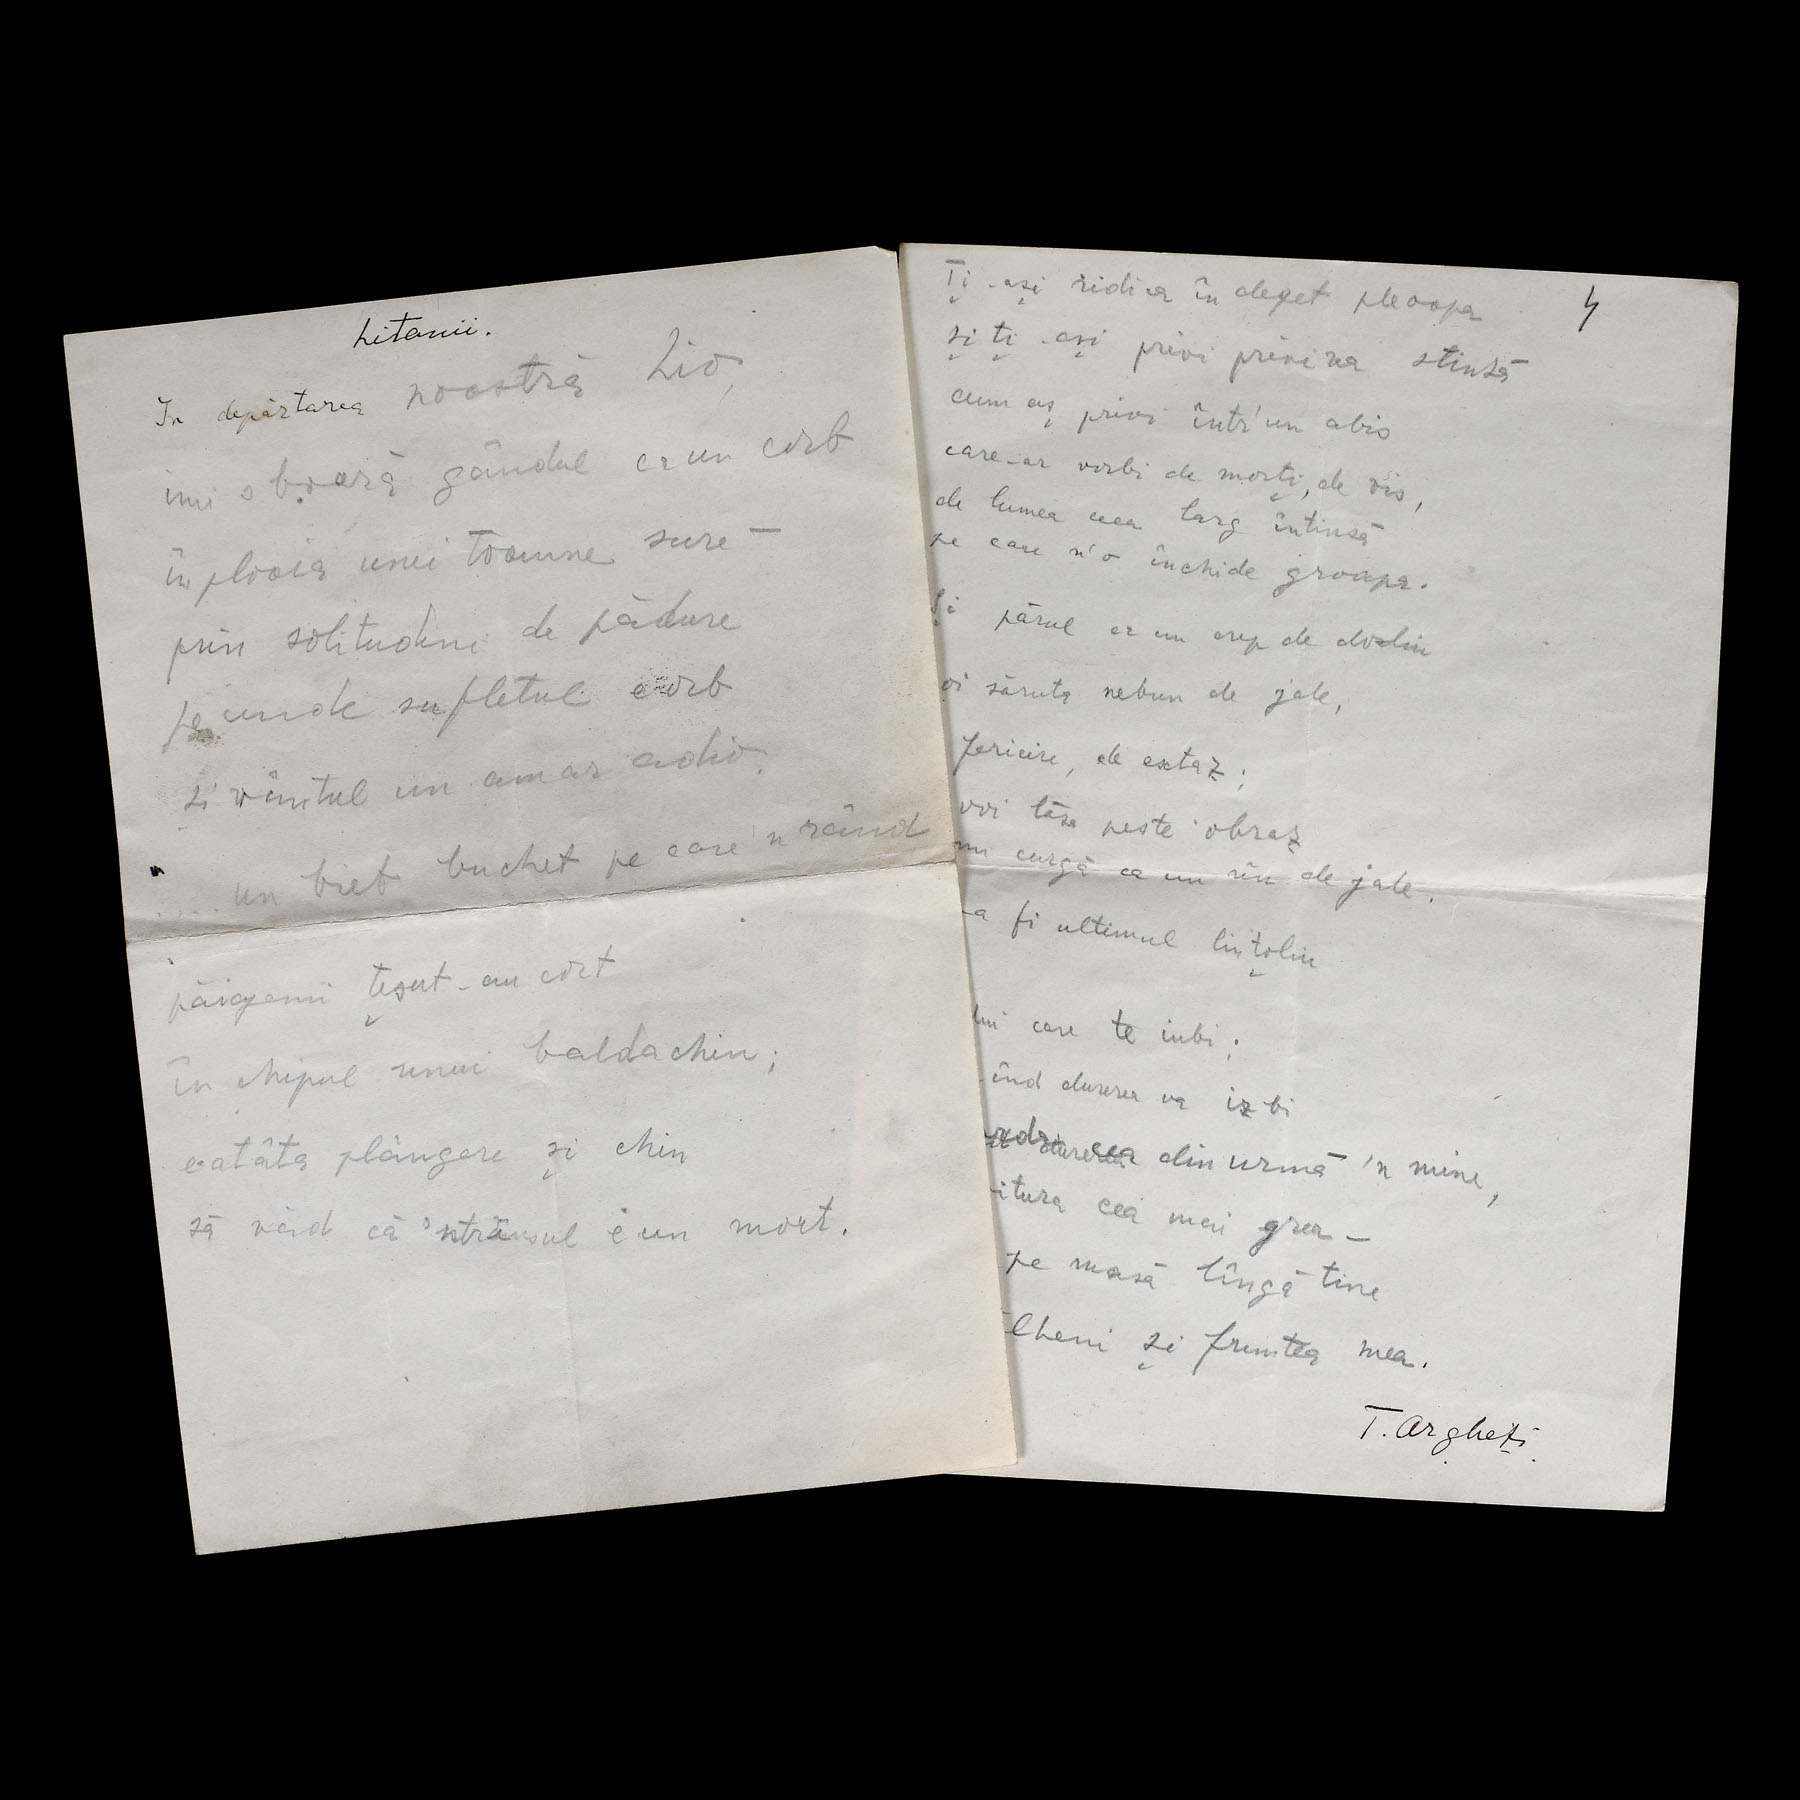 Litanii.
In depărtarea noastră Lio,
imi sboară gândul ca un corb
în ploaia unei toamne sure –
prin solitudini de pădure
pe unde sufletul e orb
și vântul un amar adio.
.... un biet buchet pe care 'n rând
păiajenii țesut-au cort
în chipul unui baldachin;
e atâta plângere și chin
să văd că 'ntrânsul e un mort.
4
Ți-ași ridica în deget pleoapa
și ți-ași privi privirea stinsă
cum aș privi într'un abis
care-ar vorbi de morți, de vis,
de lumea ceea larg întinsă
pe care n'o închide groapa.
Și părul ca un crep de doliu
oi săruta nebun de jale,
fericire, de extaz;
voi lăsa peste obraz
nu curgă ca un rîu de jale.
-a fi ultimul lințoliu
lui care te iubi;
înd durerea va izbi
cea din urmă 'n mine,
itura cea mai grea –
pe masă lîngă tine
și fruntea mea.
T. Arghezi.